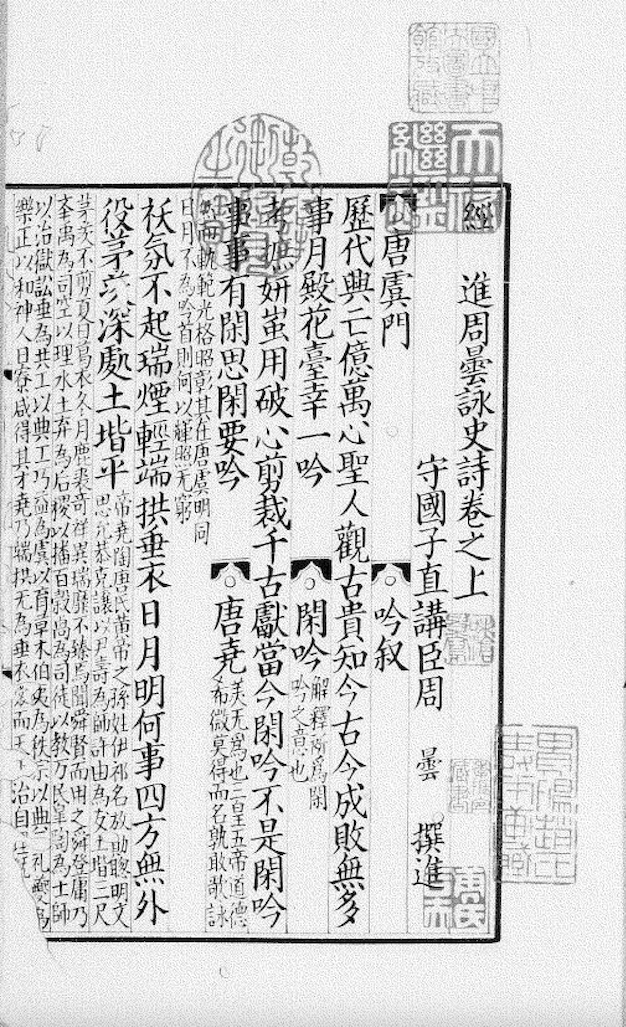 經進周曇詠史詩卷之上
守國子直講臣周 曇 撰進
唐虞門 吟叙
歷代興亡億萬心聖人觀古貴知今古今成敗無多
事月殿花臺幸一吟 閑吟 解釋所為閑
吟之音也
考摭妍蚩用破心剪裁千古獻當今閑吟不是閑吟
事事有閑思閑要吟 唐堯 美无為也三皇五帝道德
希微莫得而名孰敢歌詠
然而軌範光格昭彰其在唐虞明同
日月不為吟首則何以輝照无窮
祅氛不起瑞煙輕端拱垂衣日月明何事四方無外
役茅茨深處土堦平 帝堯陶唐氏黃帝之孫姓伊祁名放勛聰明文
思允恭克讓以尹壽為師許由為友土堦三尺
茅茨不剪夏日葛衣冬月鹿裘奇祥異瑞靡不臻焉聞舜賢而用之舜登庸乃
奉禹為司空以理水土弃為后稷以播百穀卨為司徒以教万民皐陶為士師
以治獄訟垂為共工以典工巧益為虞以育草木伯夷為秩宗以典三礼夔為
樂正以和神人日寮咸得其才堯乃端拱无為垂衣裳而天下治自
國立中央圖書館收藏
天祿繼鑑
乾隆御覽之寶